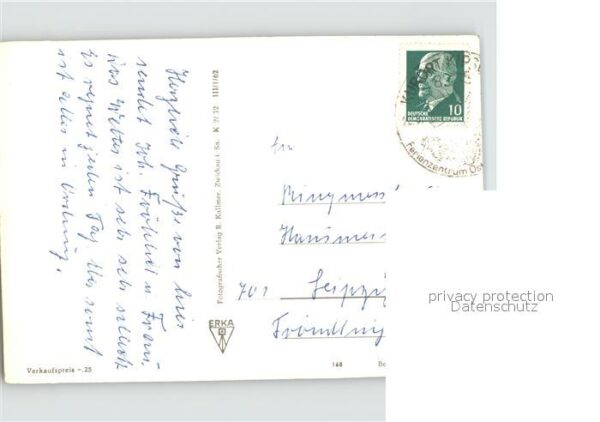 Herzliche Grüße von hier
sendet Joh. Fröhlich u. Frau.
Das Wetter ist sehr sehr schlecht
es regnet jeden Tag aber sonst
ist alles in Ordnung.
Verkaufspreis -.25
Fotografischer Verlag R. Kallmer, Zwickau i. Sa. K 2132 III/1/62
ERKA
KURORT
Ferienzentrum
10
DEUTSCHE
DEMOKRATISCHE REPUBLIK
An
Hausmes
701 Leipzig
168
privacy protection
Datenschutz